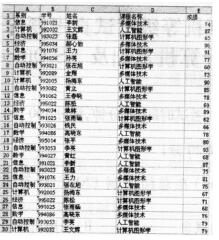 A B C D E
1 系别 学号 姓名 课程名称 成绩
2 信息 991021 李新 多媒体技术 74
3 计算机 992032 王文辉 人工智能 87
4 自动控制 993023 张磊 多媒体技术 65
5 经济 995034 郝心怡 多媒体技术
6 信息 991076 王力 多媒体技术
7 数学 994056 孙英 多媒体技术
8 自动控制 993021 张在旭 计算机图形学
9 计算机 992089 金翔 多媒体技术 73
10 计算机 992005 扬海东 人工智能 90
11 自动控制 993082 黄立 计算机图形学 85
12 信息 991062 王春晓 多媒体技术 78
13 经济 995022 陈松 人工智能 69
14 数学 994034 姚林 多媒体技术
15 信息 991025 张雨涵 计算机图形学 62
16 自动控制 993026 钱民 多媒体技术 66
17 数学 994086 高晓东 人工智能 78
18 经济 995014 张平 多媒体技术 80
19 自动控制 993053 李英 计算机图形学 93
20 数学 994027 黄红 人工智能 68
21 信息 991021 李新 人工智能 87
22 自动控制 993023 张磊 多媒体技术 75
23 信息 991076 王力 多媒体技术 81
24 自动控制 993021 张在旭 人工智能 75
25 计算机 992005 扬海东 计算机图形学 67
26 经济 995022 陈松 计算机图形学 71
27 信息 991025 张雨涵 多媒体技术 68
28 数学 994086 高晓东 多媒体技术 76
29 自动控制 993053 李英 人工智能 79
30 计算机 992032 王文辉 计算机图形学 79